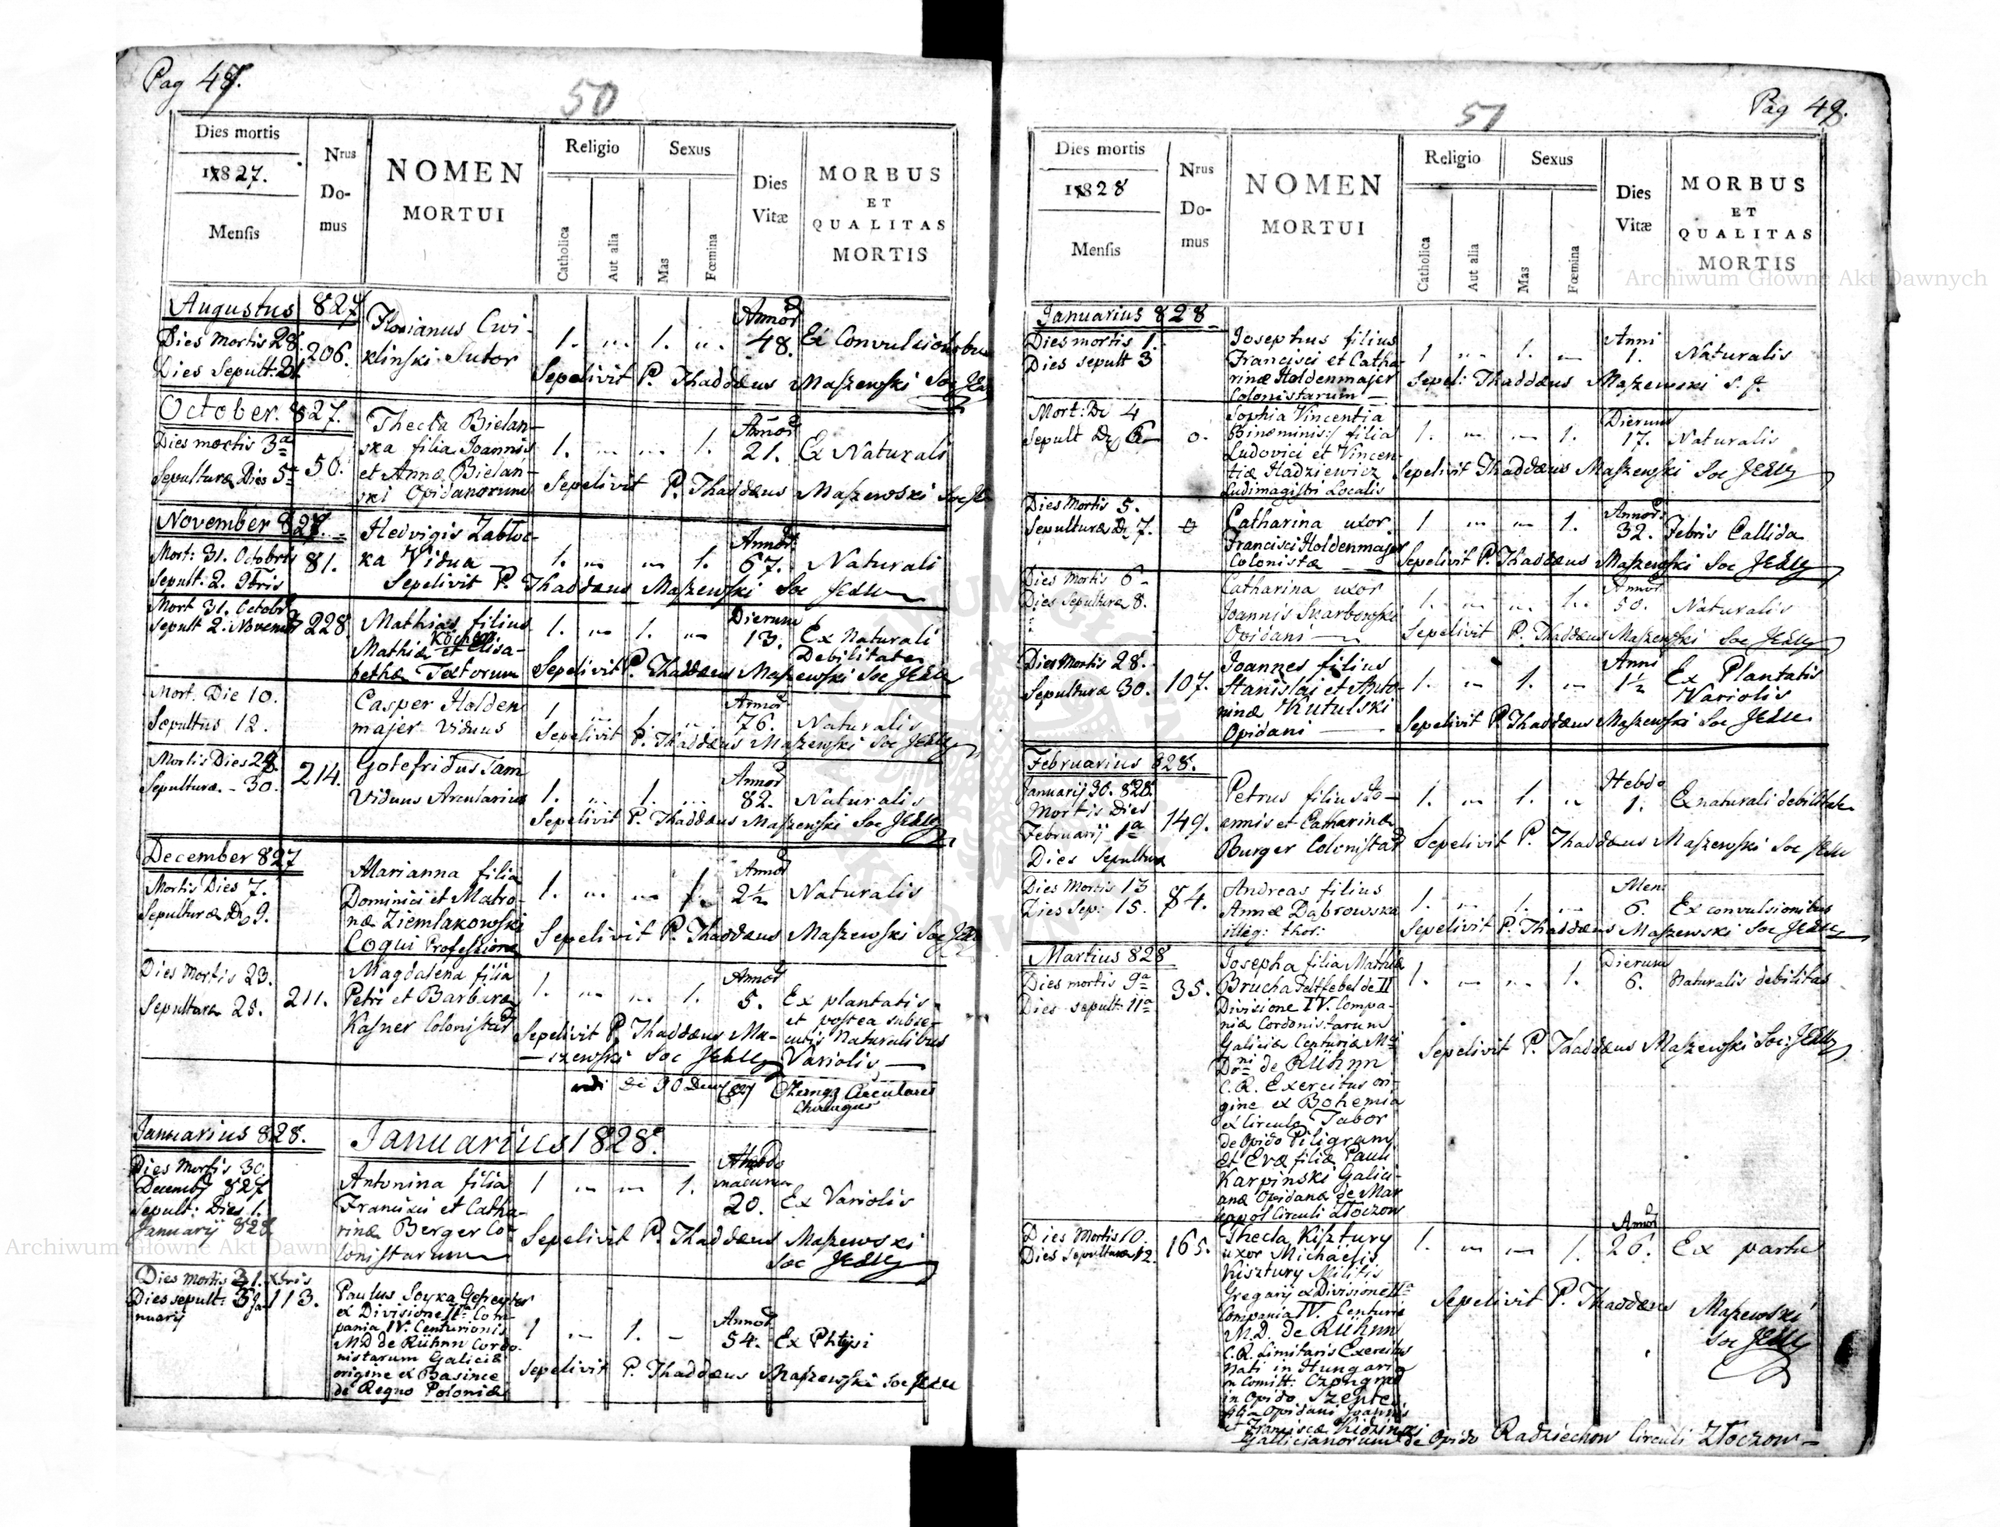 Pag 47.
50
Dies mortis
1827.
Mensis
Nrus
Do-
mus
NOMEN
MORTUI
Religio
Catholica
Aut alia
Sexus
Mas
Fœmina
Dies
Vitæ
MORBUS
ET
QUALITAS
MORTIS
Augustus 827
Dies Mortis 28.
Dies Sepult. 31
206.
Florianus Cwi-
klinski Sutor
1. " 1. "
Annor
48.
Ex Convulsionibus
Sepelivit P. Thaddæus Maszewski Soc Jesu
October. 827.
Dies mortis 3a
Sepulturæ Dies 5
50.
Thecla Bielan-
ska filia Joannis
et Annæ Bielan-
ski Opidanorum
1. " " 1.
Annor
21.
Ex Naturali
Sepelivit P. Thaddæus Maszewski Soc Je.
November 827.
Mort: 31. Octobris
Sepult: 2. 9bris
81.
Hedvigis Zabloc-
ka Vidua
1. " " 1.
Annor
67.
Naturali
Sepelivit P. Thaddæus Maszewski Soc Jesu
Mort 31. Octobr
Sepult 2. Novemb
228
Mathias filius
Mathiæ et Elisa-
bethæ Textorum
1. " 1. "
Dierum
13.
Ex Naturali
Debilitate
Sepelivit P. Thaddæus Maszewski Soc Jesu
Mort. Die 10.
Sepultus 12.
Casper Holden
majer Viduus
1. " 1. "
Annor
76.
Naturalis
Sepelivit P. Thaddæus Maszewski Soc Jesu
Mortis Dies 28.
Sepulturæ - 30.
214.
Gotefridus Tam
Viduus Arcularius
1. " 1. "
Annor
82.
Naturalis
Sepelivit P. Thaddæus Maszewski Soc Jesu
December 827
Mortis Dies 7.
Sepulturæ D 9.
Marianna filia
Dominici et Matro-
næ Ziemlakowski
Coqui Professione
1. " " 1.
Annor
2½
Naturalis
Sepelivit P. Thaddæus Maszewski Soc Jesu
Dies Mortis 23.
Sepulturæ 25.
211.
Magdalena filia
Petri et Barbaræ
Kasner Colonistar
1. " " 1.
Annor
5.
Ex plantatis
et postea subse-
cutis Naturalibus
Variolis
Sepelivit P. Thaddæus Ma-
szewski Soc Jesu
Januarius 828.
Januarius 1828.
Dies Mortis 30.
Decemb 827
Sepult: Dies 1.
Januarij 828
Antonina filia
Francisci et Catha-
rinæ Berger Co-
lonistarum
1 " " 1.
Hebdo
madarum
20.
Ex Variolis
Sepelivit P. Thaddæus Maszewski
Soc Jesu
Dies mortis 31. Xbris
Dies sepult: 3 Ja-
nuarij
113.
Paulus Soyka Gefreyter
ex Divisione IIa Com-
pania IV. Centurionis
MD de Rühnn Cordo-
nistarum Galiciæ
origine ex Basince
de Regno Poloniæ
1 " 1. -
Annor
54.
Ex Phtysi
Sepelivit P. Thaddæus Maszewski Soc Jesu
Pag 48.
51
Dies mortis
1828
Mensis
Nrus
Do-
mus
NOMEN
MORTUI
Religio
Catholica
Aut alia
Sexus
Mas
Fœmina
Dies
Vitæ
MORBUS
ET
QUALITAS
MORTIS
Januarius 828
Dies mortis 1.
Dies sepult 3
Josephus filius
Francisci et Catha-
rinæ Holdenmajer
Colonistarum
1 " 1. -
Anni
1.
Naturalis
Sepel: Thaddæus Maszewski S. J.
Mort: Di 4
Sepult D 6
0.
Sophia Vincentia
Binæminis filia
Ludovici et Vincen-
tiæ Hadziewicz
Ludimagistri Localis
1. " " 1.
Dierum
17.
Naturalis
Sepelivit Thaddæus Maszewski Soc Jesu
Dies Mortis 5.
Sepulturæ D 7.
0
Catharina uxor
Francisci Holdenmajer
Colonistæ
1 " " 1.
Annor:
32.
Febris Callida
Sepelivit P. Thaddæus Maszewski Soc Jesu
Dies Mortis 6
Dies Sepulturæ 8.
Catharina uxor
Joannis Skarbowski
Opidani
1. " " 1.
Annor
50.
Naturalis
Sepelivit P. Thaddæus Maszewski Soc Jesu
Dies Mortis 28.
Sepulturæ 30.
107.
Joannes filius
Stanislai et Anto-
ninæ Kutulski
Opidani
1. " 1. "
Anni
1½
Ex Plantatis
Variolis
Sepelivit P. Thaddæus Maszewski Soc Jesu
Februarius 828.
Januarij 30. 828.
Mortis Dies
Februarij 1a
Dies Sepulturæ
149.
Petrus filius Jo-
annis et Catharinæ
Burger Colonistar
1. " 1. "
Hebdo
1.
Ex naturali debilitate
Sepelivit P. Thaddæus Maszewski Soc Jesu
Dies Mortis 13
Dies Sep: 15.
84.
Andreas filius
Annæ Dąbrowska
illeg: thor:
1. " 1. "
Men
6.
Ex convulsionibus
Sepelivit P. Thaddæus Maszewski Soc Jesu
Martius 828
Dies mortis 9a
Dies sepult: 11a
35.
Josepha filia Mathiæ
Brucha Feltfebel de II
Divisione IV. Compa-
niæ Cordonistarum
Galiciæ Centuriæ
de Rühnn
C.R. Exercitus ori-
gine ex Bohemia
ex Circulo Tabor
de Opido Piligram
et Evæ filiæ Pauli
Karpinski Galici-
anæ Opidanæ de Mar
kopol Circuli Złoczow
1 " " 1.
Dierum
6.
Naturalis debilitas
Sepelivit P. Thaddæus Maszewski Soc: Jesu
Dies Mortis 10.
Dies Sepulturæ 12.
165.
Thecla Kisztury
uxor Michaelis
Kisztury Militis
Gregarij ex Divisione IIa
Compania IV. Centuriæ
M.D. de Rühnn
C.R. Limitaris Exercitus
Nati in Hungaria
in Comitt: Czongrad
in Opido Szente
Opidani Joannis
et Franciscæ
Gallicianorum de Opido Radziechow Circuli Złoczow
1. " " 1.
Annor
26.
Ex partu
Sepelivit P. Thaddæus Maszewski
Soc Jesu
Archiwum Główne Akt Dawnych
Archiwum Główne Akt Dawnych